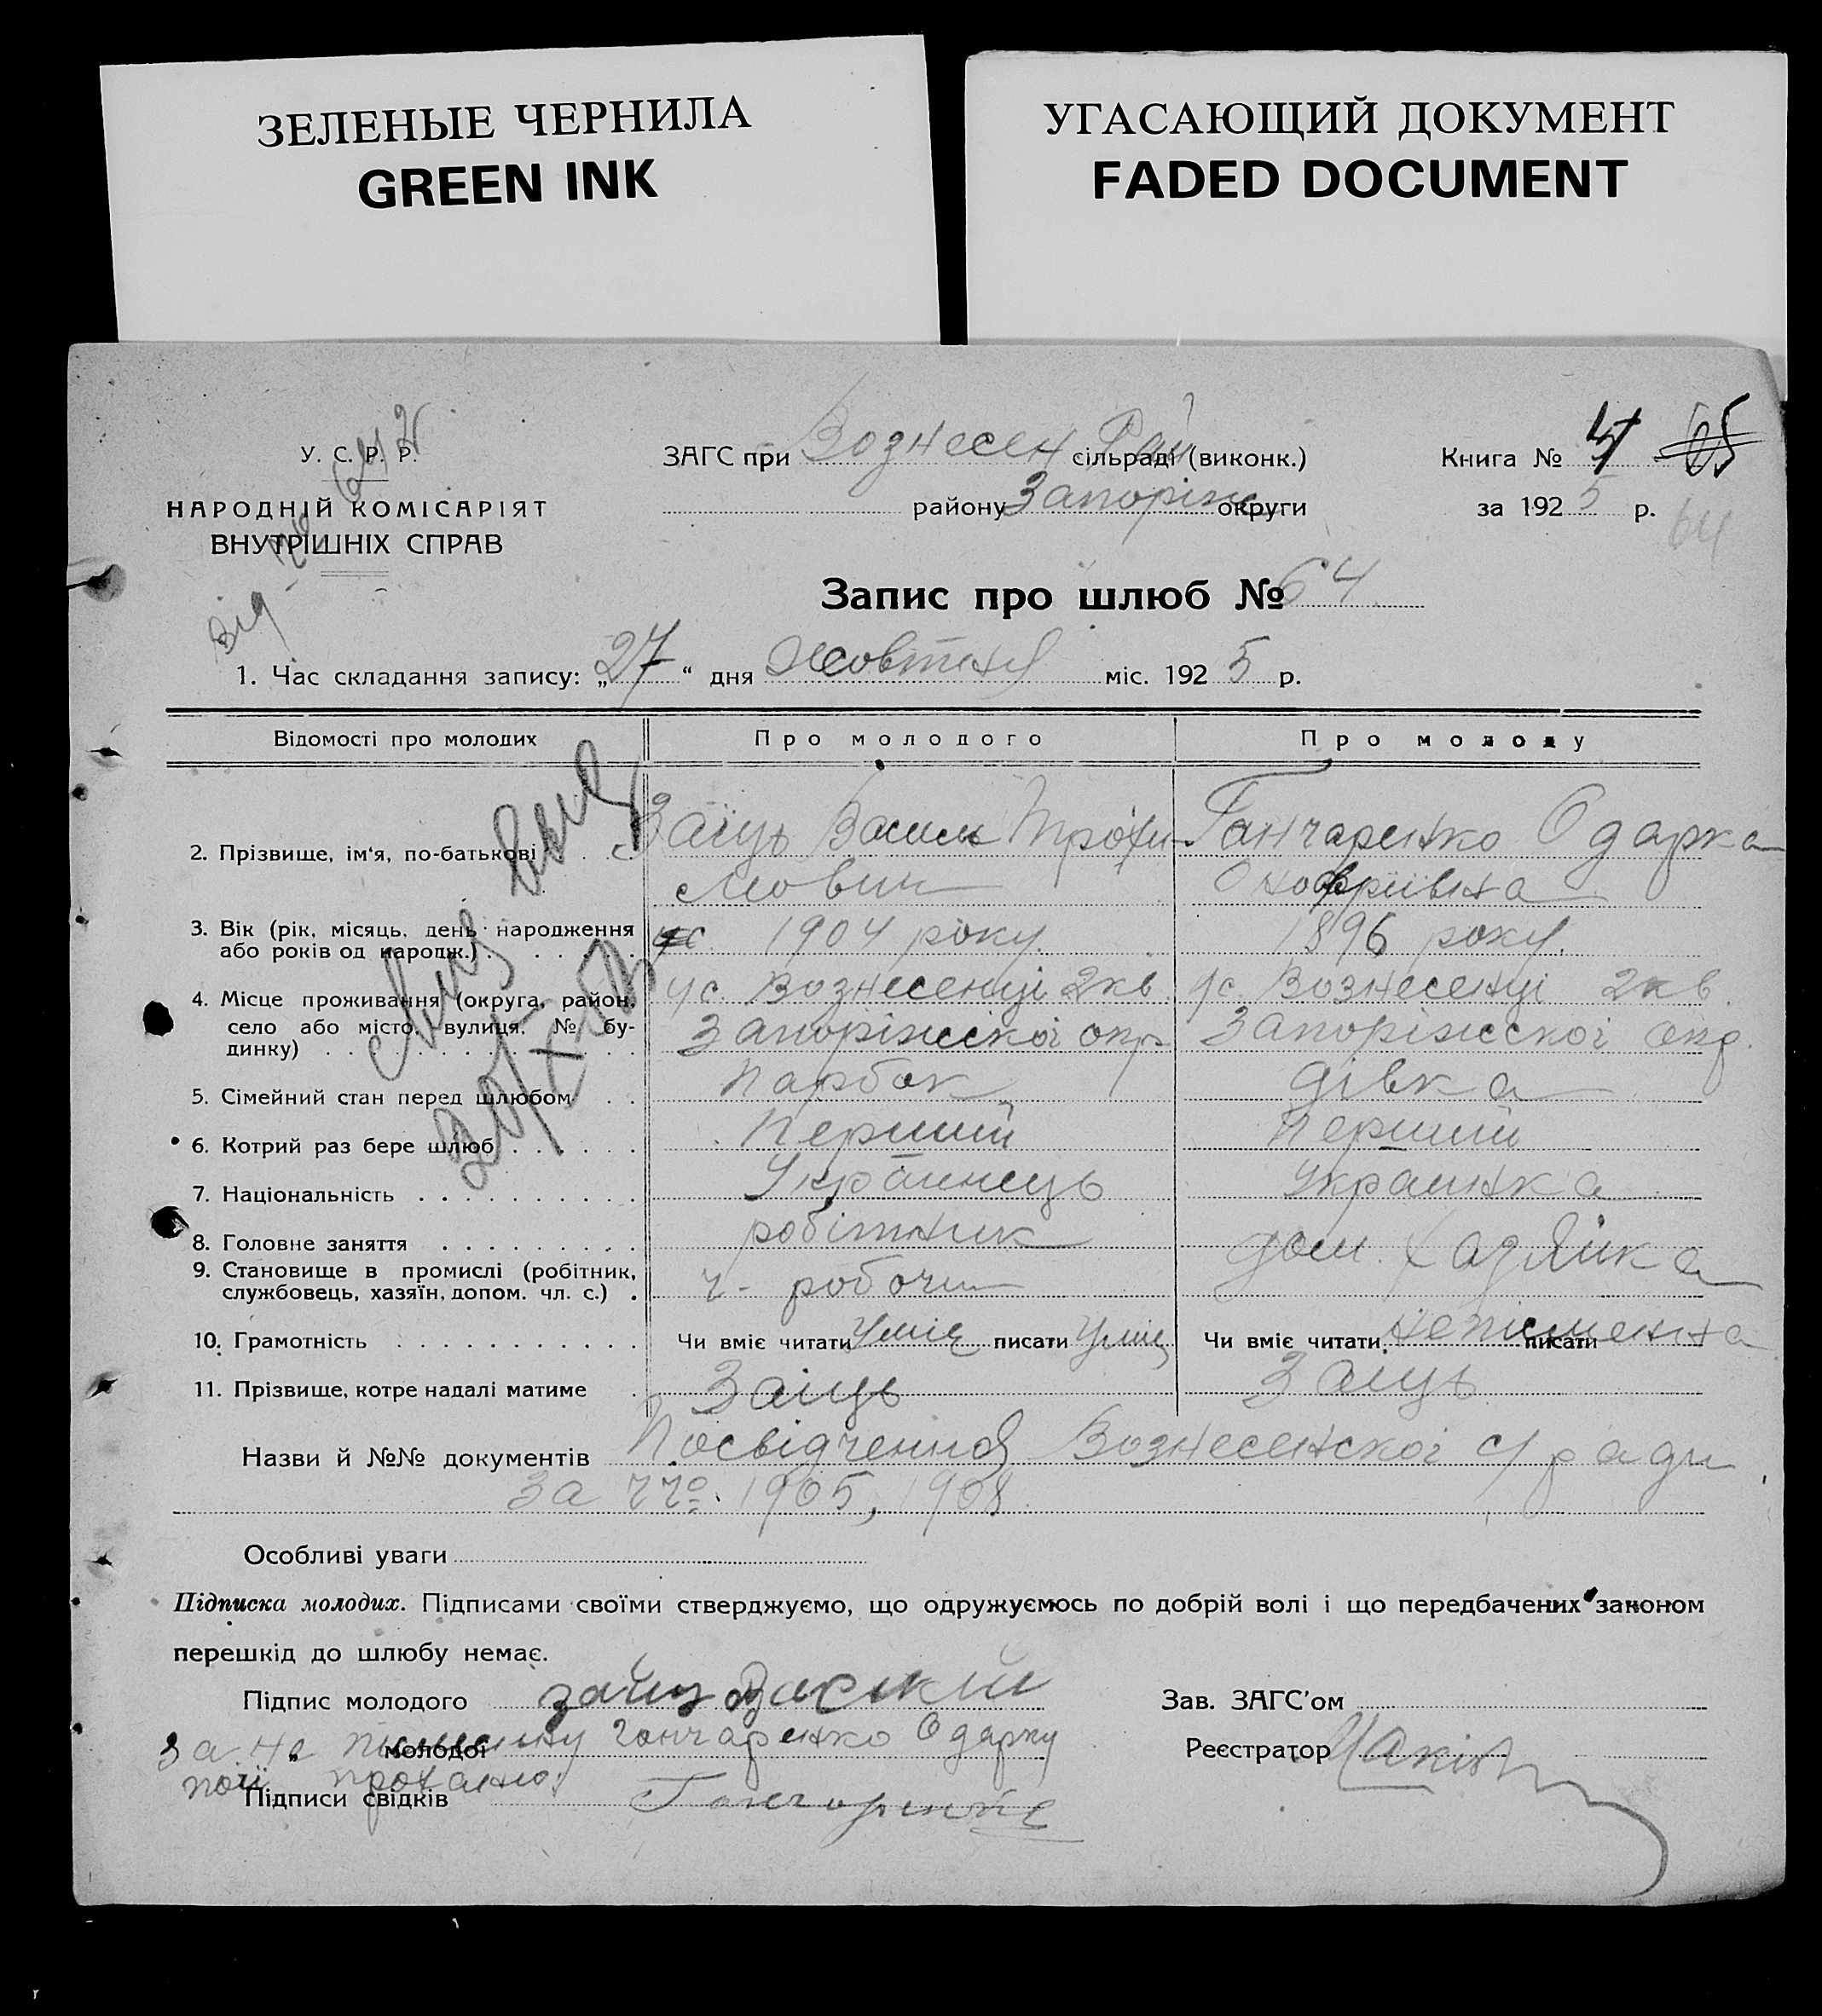 ЗЕЛЕНЫЕ ЧЕРНИЛА
GREEN INK
УГАСАЮЩИЙ ДОКУМЕНТ
FADED DOCUMENT
У. С. Р. Р.
НАРОДНІЙ КОМІСАРІЯТ
ВНУТРІШНІХ СПРАВ
ЗАГС при Вознесен Рай сільраді (виконк.)
району Запоріж округи
Книга № 4 65
за 192 5 р.
64
Запис про шлюб № 64
1. Час складання запису: „ 27 “ дня Жовтня міс. 192 5 р.
Відомості про молодих Про молодого Про молоду
2. Прізвище, ім‘я, по-батькові Заїць Василь Трофи- Ганчаренко Одарка
мович Онофріївна
3. Вік (рік, місяць, день народження 1904 року 1896 року.
або років од народж.)
4. Місце проживання (округа, район, у с. Вознесенці 2 кв у с. Вознесенці 2 кв.
село або місто, вулиця, № бу- Запоріжської окр Запоріжської окр.
динку)
5. Сімейний стан перед шлюбом Парбок дівка
6. Котрий раз бере шлюб Перший Перший
7. Національність Українець Украінка
8. Головне заняття робітник
9. Становище в промислі (робітник, дом. хазяйка
службовець, хазяїн, допом. чл. с.) робочи
10. Грамотність Чи вміє читати Уміє писати Уміє Чи вміє читати неписьменна писати
11. Прізвище, котре надалі матиме Заіць Заіць
Назви й №№ документів Посвідчення Вознесенскоі с/ради
за 1905, 1908
Особливі уваги
Підписка молодих. Підписами своїми стверджуємо, що одружуємось по добрій волі і що передбачених законом
перешкід до шлюбу немає.
Підпис молодого заиц Василий Зав. ЗАГС’ом
за не письменну молодої Гончаренко Одарку Реєстратор
по її проханню
Підписи свідків Гончаренко